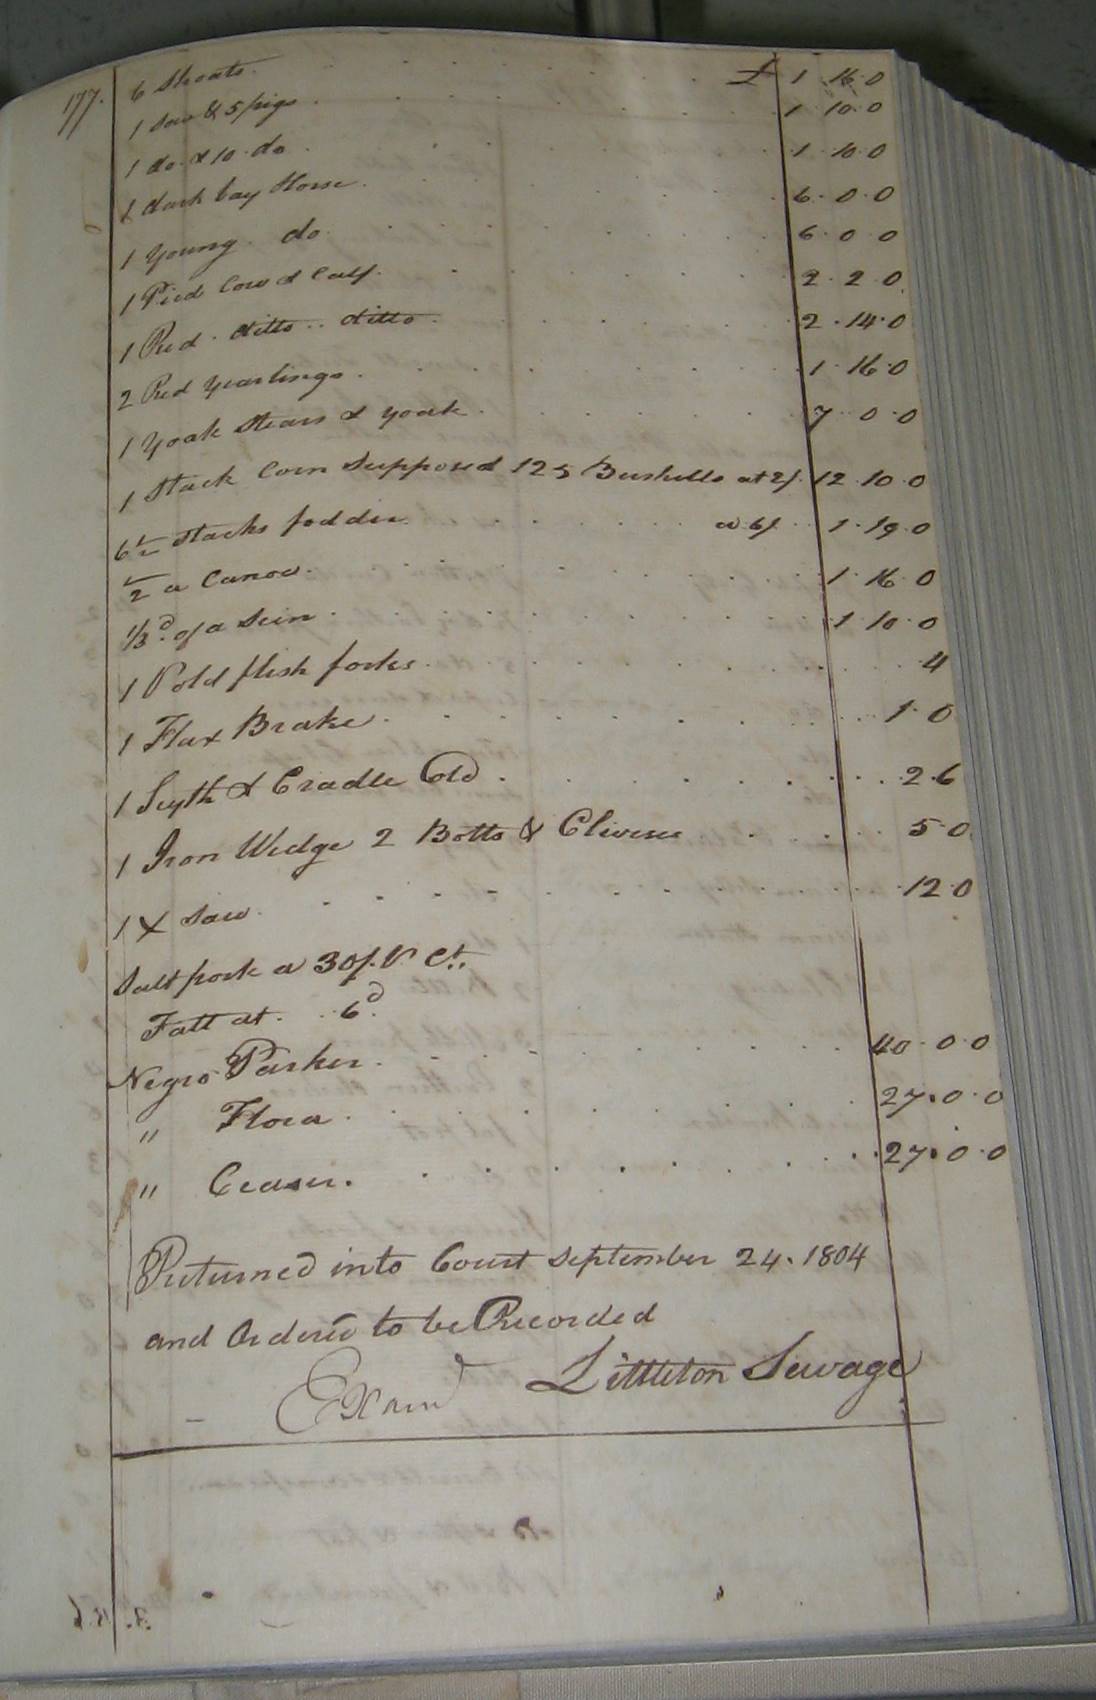 177. 6 Shoats £ 1 16 0
1 Sow & 5 pigs 1 10 0
1 do. & 10 do 1 10 0
1 dark bay Horse 6 0 0
1 Young do 6 0 0
1 Pied Cow & Calf 2 2 0
1 Red ditto ditto 2 14 0
2 Red Yearlings 1 16 0
1 Yoak Stears & Yoak 7 0 0
1 Stack Corn Supposed 125 Bushells at 2/. 12 10 0
6½ Stacks fodder a 6/ 1 19 0
½ a Canoe 1 16 0
⅓d. of a Sein 1 10 0
1 Pold flesh forks 4
1 Flax Brake 1 0
1 Syth & Cradle Old 2 6
1 Iron Wedge 2 Botts & Clivess 5 0
1 X Saw 12 0
Salt pork a 30/. P Ct.
Fatt at 6d.
Negro Parker 40 0 0
" Flora 27 0 0
" Ceaser 27 0 0
Returned into Court September 24. 1804
and Ordered to be Recorded
Examd Littleton Savage